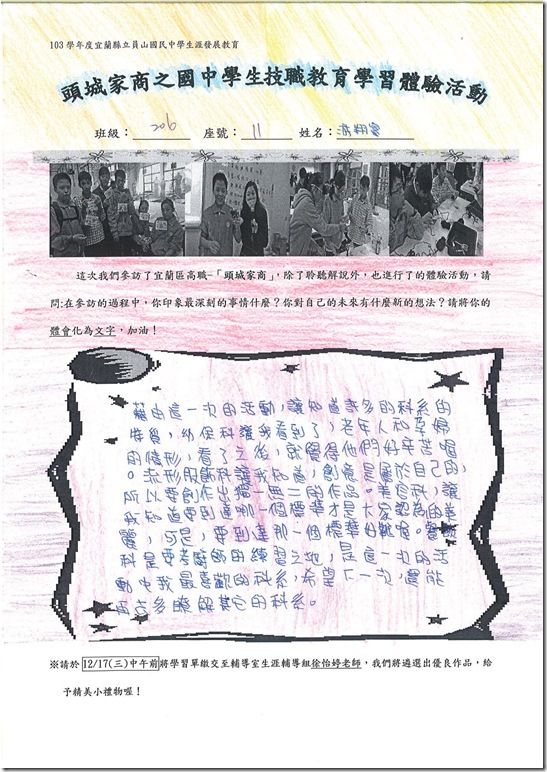 103 學年度宜蘭縣立員山國民中學生涯發展教育
頭城家商之國中學生技職教育學習體驗活動
班級：206 座號：11 姓名：
這次我們參訪了宜蘭區高職-「頭城家商」，除了聆聽解說外，也進行了的體驗活動，請
問:在參訪的過程中，你印象最深刻的事情什麼？你對自己的未來有什麼新的想法？請將你的
體會化為文字，加油！
藉由這一次的活動，讓知道許多的科系的
特質，幼保科讓我看到了，老年人和孕婦
的情形，看了之後，就覺得他們好辛苦喔
。流行服飾科讓我知道，創意是屬於自己的，
所以要創作出獨一無二的作品。美容科，讓
我知道要到達哪一個標準才是大家認為的美
麗，可是，要到達那一個標準好難喔。餐飲
科是要考廚師的練習之地，是這一次的活
動中我最喜歡的科系，希望下一次，還能
再去多瞭解其它的科系。
※請於 12/17(三)中午前將學習單繳交至輔導室生涯輔導組徐怡婷老師，我們將遴選出優良作品，給
予精美小禮物喔！